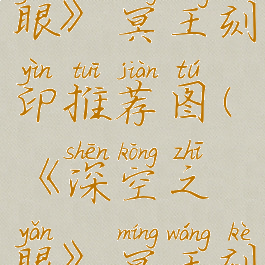 眼》 冥王刻
yìn tuī jiàn tú
印推荐图(
shēn kōng zhī
《深空之
yǎn míng wáng kè
眼》 冥王刻